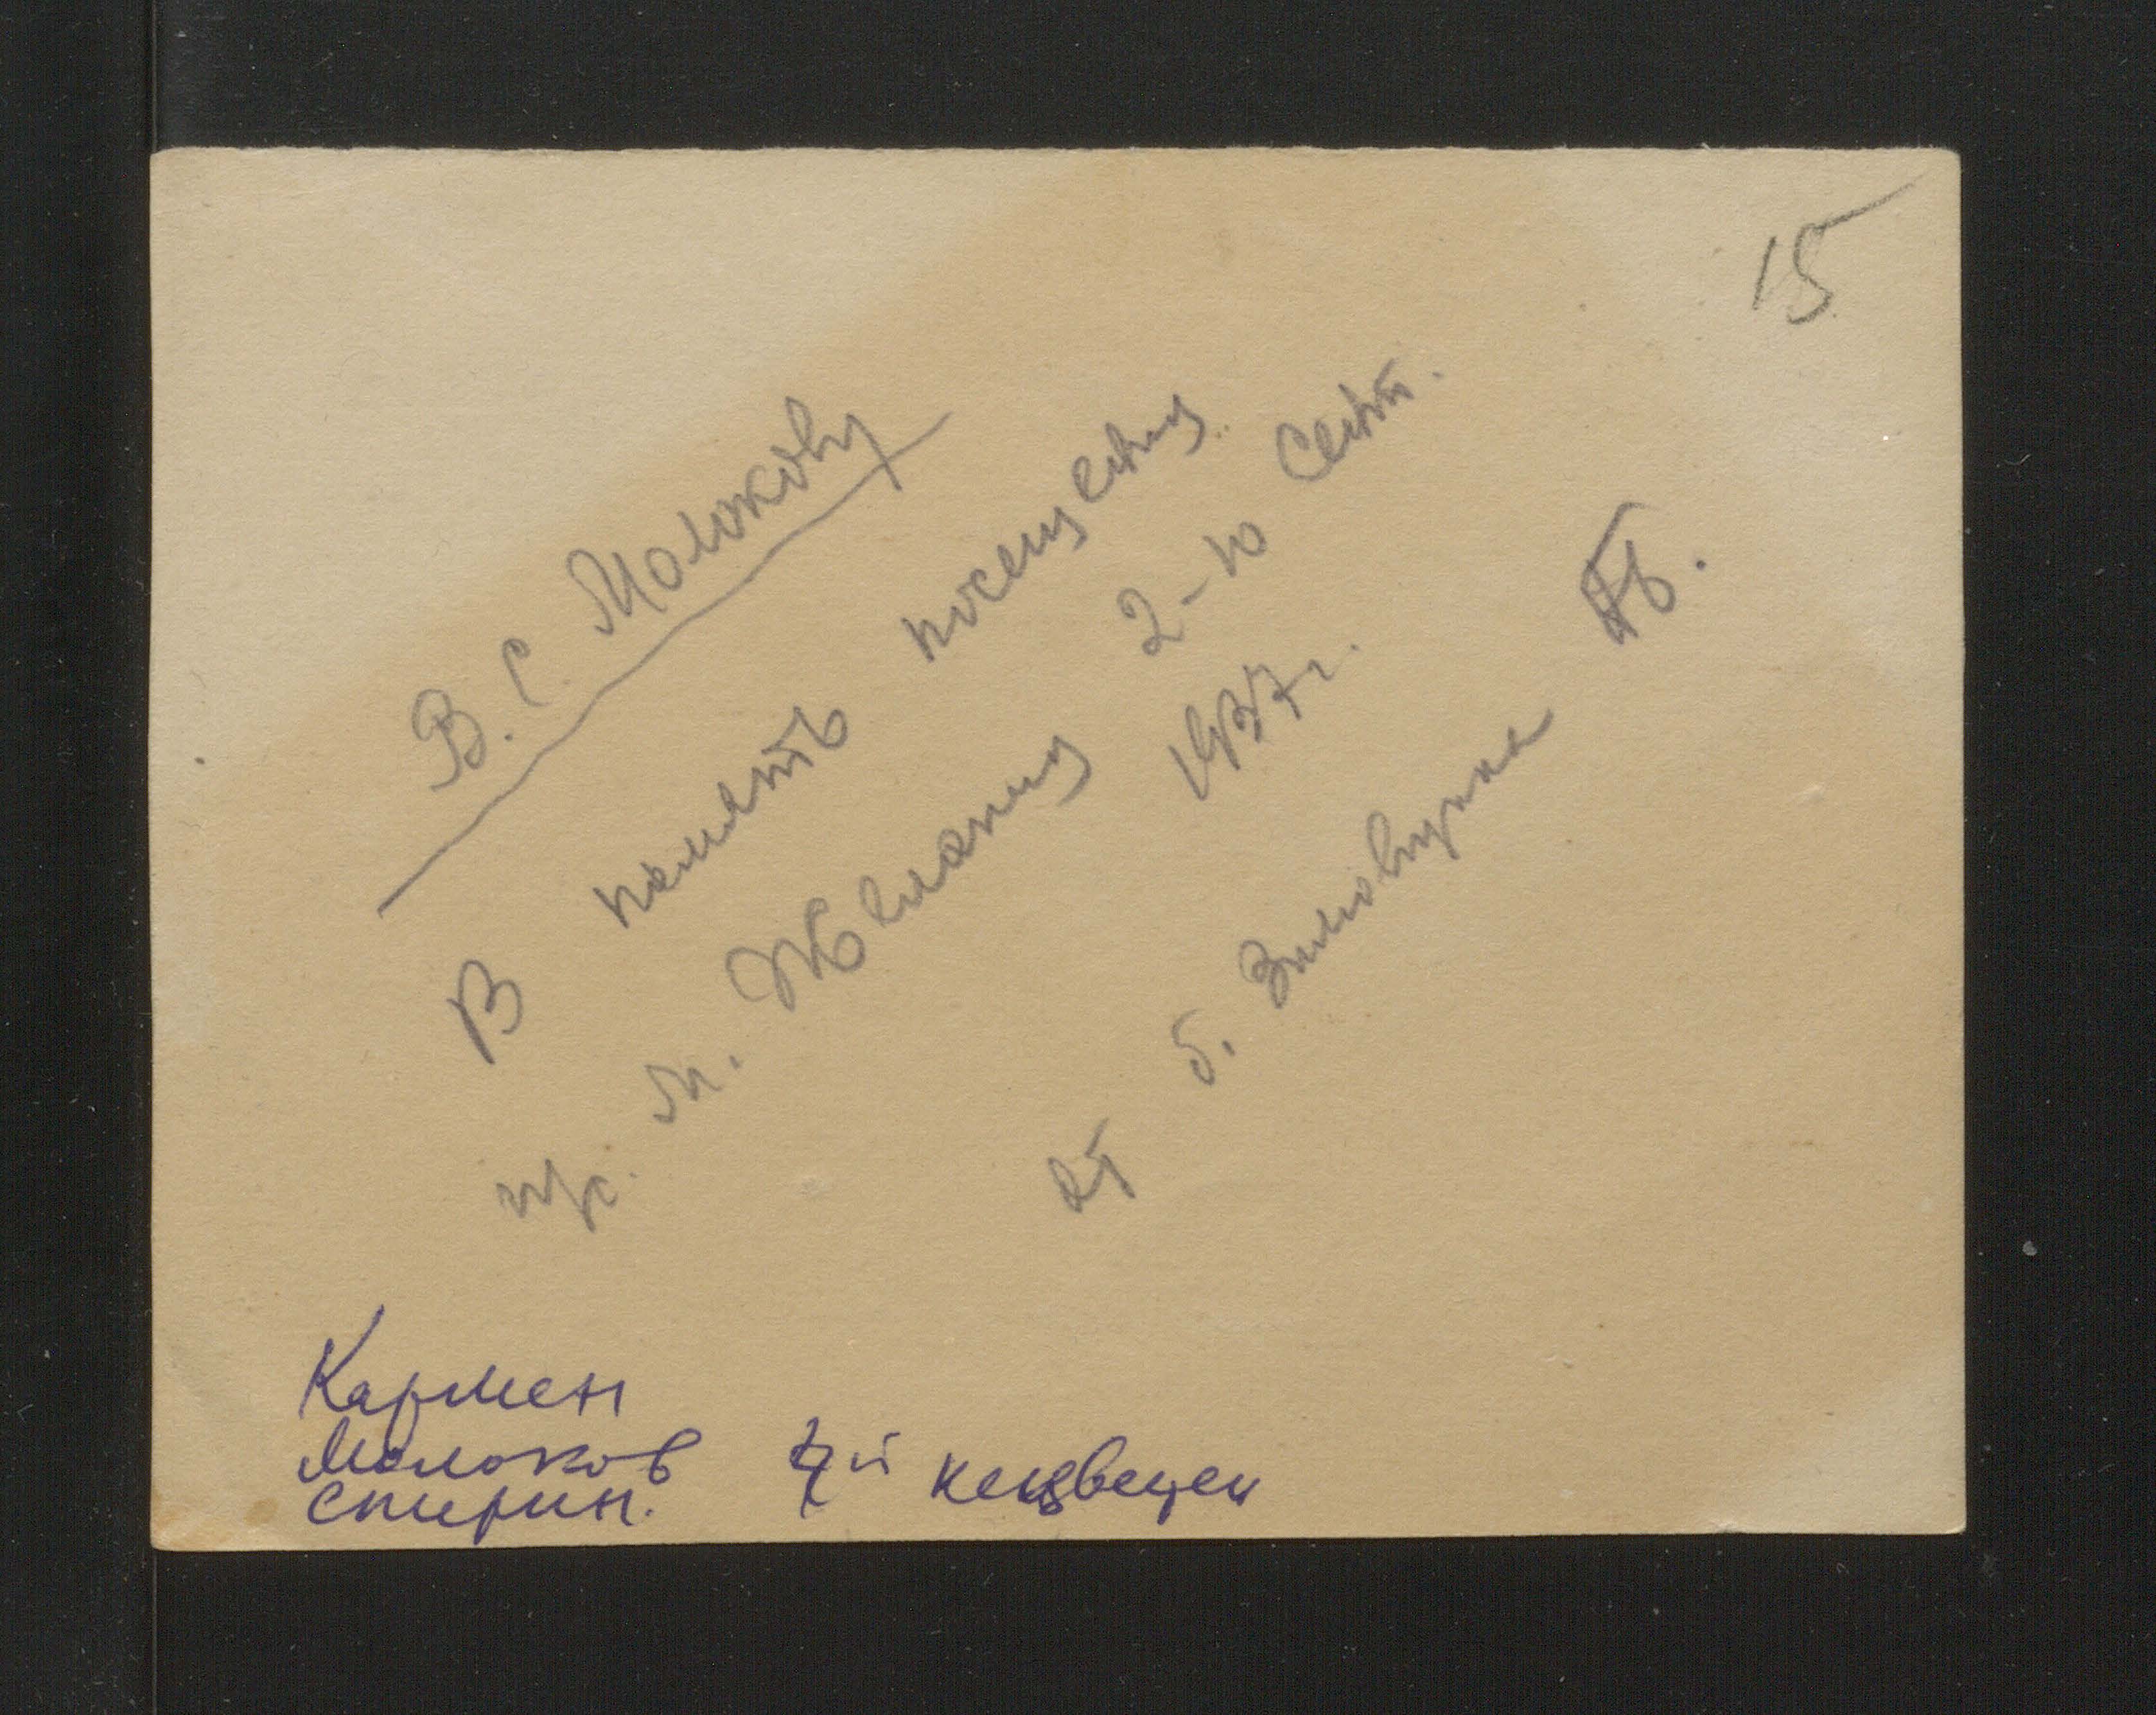 15
В. С. Молокову
В память посещения
м. Желания 2-го Сент.
1937 г.
от б. Зимовщика
Кармен
Молоков
Спирин.
4й